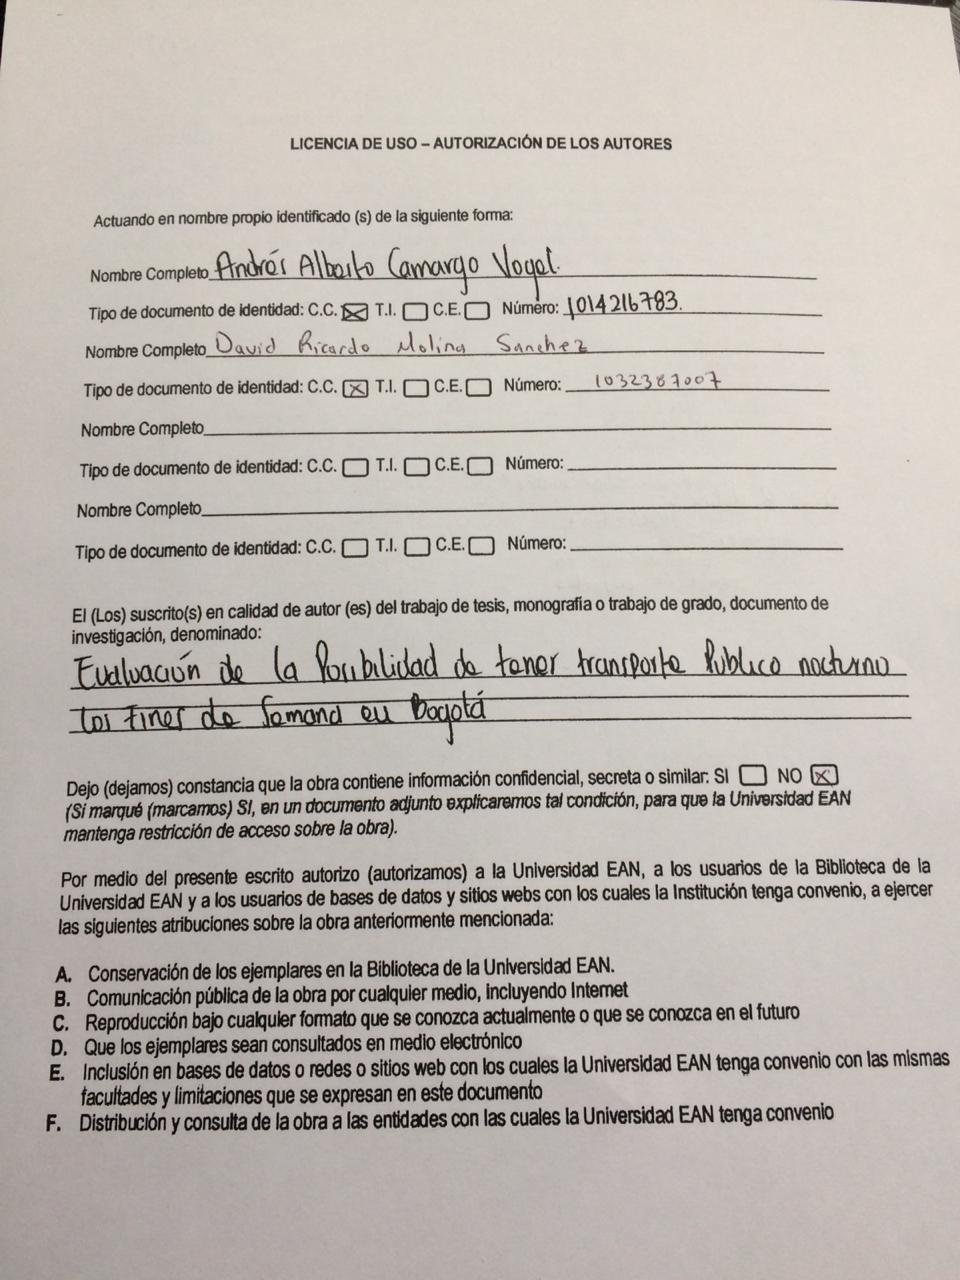 LICENCIA DE USO – AUTORIZACIÓN DE LOS AUTORES
Actuando en nombre propio identificado (s) de la siguiente forma:
Nombre Completo Andrés Alberto Camargo Vogel.
Tipo de documento de identidad: C.C. ☒ T.I. ☐ C.E. ☐ Número: 1014216783.
Nombre Completo David Ricardo Molina Sanchez
Tipo de documento de identidad: C.C. ☒ T.I. ☐ C.E. ☐ Número: 1032387007
Nombre Completo
Tipo de documento de identidad: C.C. ☐ T.I. ☐ C.E. ☐ Número:
Nombre Completo
Tipo de documento de identidad: C.C. ☐ T.I. ☐ C.E. ☐ Número:
El (Los) suscrito(s) en calidad de autor (es) del trabajo de tesis, monografía o trabajo de grado, documento de
investigación, denominado:
Evaluación de la Posibilidad de tener transporte Publico nocturno
los Fines de Semana en Bogotá
Dejo (dejamos) constancia que la obra contiene información confidencial, secreta o similar: SI ☐ NO ☒
(Si marqué (marcamos) SI, en un documento adjunto explicaremos tal condición, para que la Universidad EAN
mantenga restricción de acceso sobre la obra).
Por medio del presente escrito autorizo (autorizamos) a la Universidad EAN, a los usuarios de la Biblioteca de la
Universidad EAN y a los usuarios de bases de datos y sitios webs con los cuales la Institución tenga convenio, a ejercer
las siguientes atribuciones sobre la obra anteriormente mencionada:
A. Conservación de los ejemplares en la Biblioteca de la Universidad EAN.
B. Comunicación pública de la obra por cualquier medio, incluyendo Internet
C. Reproducción bajo cualquier formato que se conozca actualmente o que se conozca en el futuro
D. Que los ejemplares sean consultados en medio electrónico
E. Inclusión en bases de datos o redes o sitios web con los cuales la Universidad EAN tenga convenio con las mismas
facultades y limitaciones que se expresan en este documento
F. Distribución y consulta de la obra a las entidades con las cuales la Universidad EAN tenga convenio